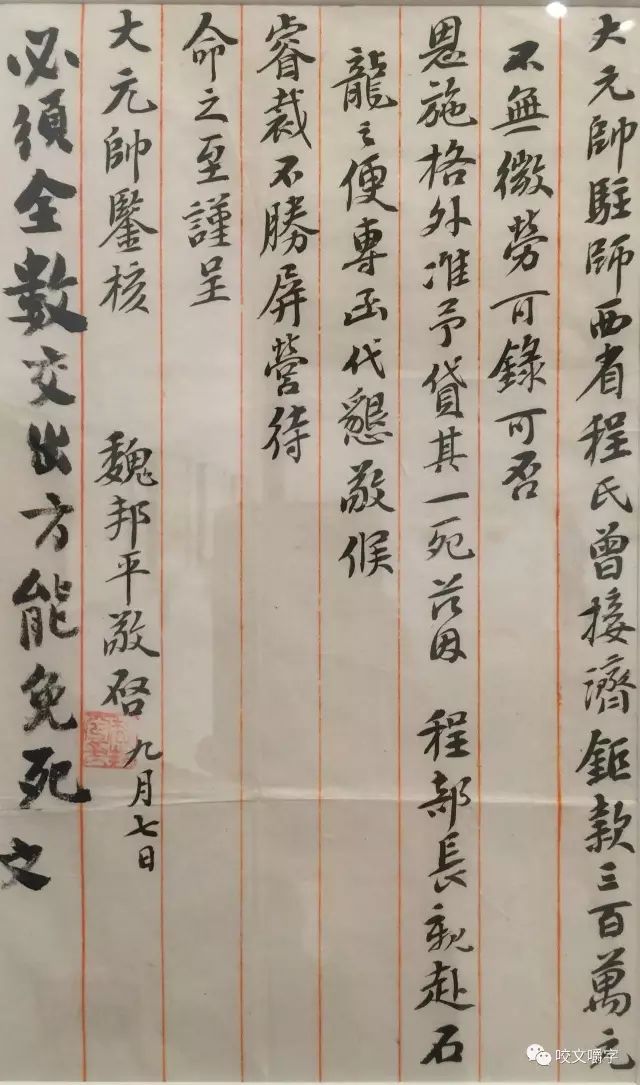 大元帥駐師西省程氏曾接濟鉅款三百萬元
不無微勞可錄可否
恩施格外准予貸其一死茲因 程部長親赴石
龍之便專函代懇敬候
睿裁不勝屏營待
命之至謹呈
大元帥鑒核
魏邦平敬啓 九月七日
必須全數交出方能免死 文
咬文嚼字